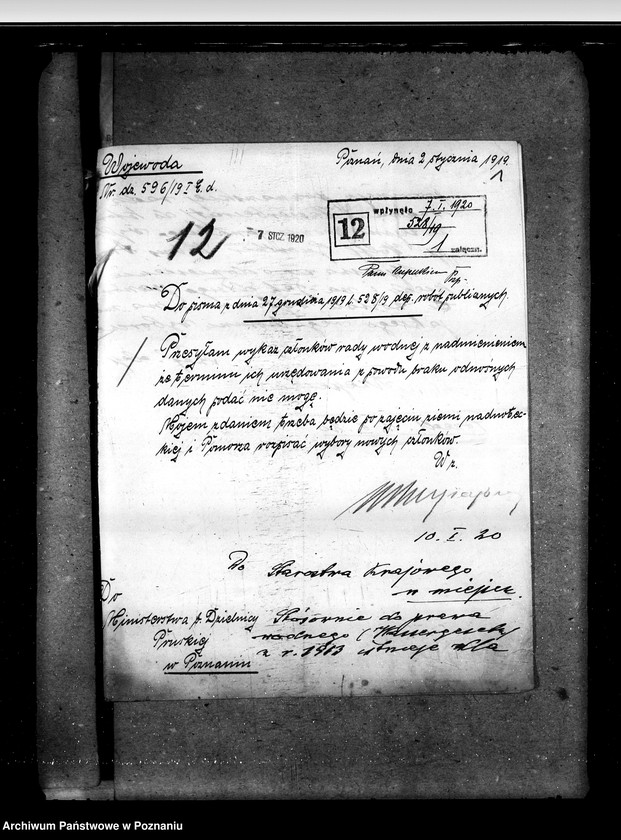 Wojewoda
Poznań, dnia 2 stycznia 1919.
Nr. dz. 596/19 I g. d.
12
7 STCZ. 1920
12
wpłynęło 7. I. 1920
528/19
1 załączn.
Do pisma z dnia 27. grudnia 1919 l. 528/9 dep. robót publicznych.
Przesyłam wykaz członków rady wodnej z nadmienieniem
że terminu ich urzędowania z powodu braku odnośnych
danych podać nie mogę.
Mojem zdaniem trzeba będzie po zajęciu ziemi nadnotec-
kiej i Pomorza rozpisać wybory nowych członków.
W z.
10. I. 20
Do
Starostwa Krajowego
w miejscu
Do
Ministerstwa b. Dzielnicy
Pruskiej
w Poznaniu
Stosownie do prawa
wodnego (Wassergesetz)
z r. 1913 istnieje dla
Archiwum Państwowe w Poznaniu